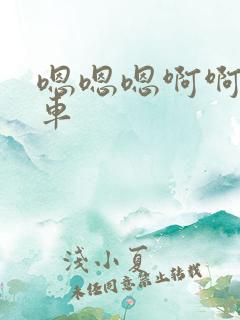 嗯嗯嗯啊啊
車
淺小夏
未经同意禁止转载